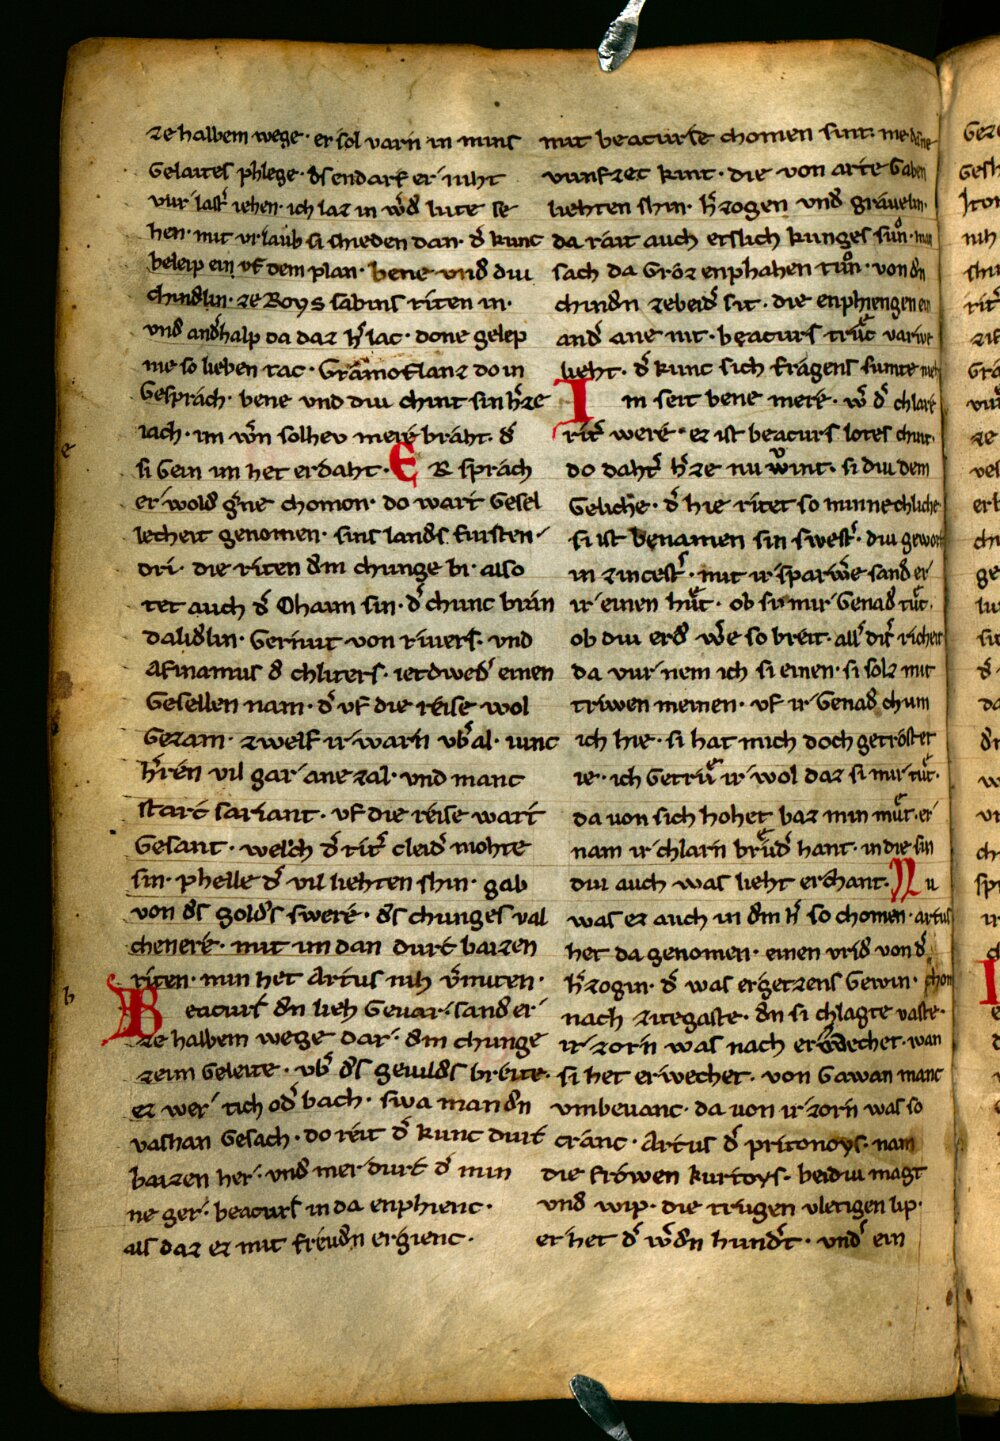 ze halbem wege · er sol varn in mins
Geleites phlege · ds̄ endarf er niht
vur last̄ iehen · ich laz in wd̄ lute se
hen · mit vrlaub si schieden dan · d̄ kunc
beleip ein vf dem plan · bene vnd̄ diu
chindlin · ze Roys sabins riten in ·
vnd̄ and̄halp da daz h̄ lac · done gelep
me so lieben tac · Gramoflanz do in
Gesprach · bene vnd diu chint sin h̄ze
iach · im wr̄n solhev mere braht · d̄
si Gein im het erdaht · E R sprach
er wold gn̄e chomen · do wart Gesel
lecheit genomen · sins landes fursten
dri · die riten dm̄ chunge bi · also
tet auch d̄ Ohaim sin · d̄ chunc bran
dalidlin · Gernut von riuers · vnd
Afinamus d̄ chliters · ietdwed̄ einen
Gesellen nam · d̄ vf die reise wol
Gezam · zwelf ir warn vb̄al · iunc
hr̄ren vil gar ane zal · vnd manc
starc sariant · vf die reise wart
Gesant · welch d̄ rit̄ cleid̄ mohte
sin · phelle d̄ vil liehten shin · gab
von ds̄ golds̄ swere · ds̄ chunges val
chenere · mit im dan durc baizen
riten · nun het Artus nih v̄miten ·
B eacurs dn̄ lieh Gevar · sand er
ze halbem wege dar · dm̄ chunge
zeim Geleite · vb̄ ds̄ geuilds̄ breite ·
ez wer tich od̄ bach · swa man dn̄
vashan Gesach · do reit d̄ kunc durc
baizen her · vnd mer durc d̄ min
ne ger · beacurs in da enphienc ·
als daz ez mit freudn̄ ergienc ·
mit beacurse chomen sint · me dāne
vunfzec kint · die von arte Gaben
liehten shin · h̄zogen vnd̄ grauelin ·
da rait auch etslich kunges suͦn · man
sach da Groz enphahen tuͦn · von dn̄
chindn̄ zebeid̄ sit · die enphiengen ein
and̄ ane nit · beacurs truͤc varwe
lieht · d̄ kunc sich fragens sumte nieh
I m seit bene mere · w̄ d̄ chlare
rit̄ were · ez ist beacurs lotes chint ·
do daht̄ h̄ze nu vint · si diu dem
Geliche · d̄ hie ritet so minnechliche
si ist benamen sin swest̄ · diu geworh
in zincest̄ · mit ir sparw̄e sand̄ er
ir einen huͤt · ob si mir Genad tuͤt ·
ob diu erd̄ w̄e so breit · all̄ dir̄ richeit
da vur nem ich si einen · si solz mit
triwen meinen · vf ir Genad̄ chum
ich hie · si hat mich doch getrostet
ie · ich Getruͤ ir wol daz si mir tuͤt ·
da von sich hohet baz min muͤt · er
nam ir chlarn bruͤd̄ hant · in die sin
diu auch was lieht erchant · N u
was ez auch in dm̄ h̄ so chomen · artus
het da genomen · einen vrid̄ von d̄
h̄zogin · d̄ was ergetzens Gewin · chom
nach zitegaste · dn̄ si chlagte vaste ·
ir zorn was nach erwechet · wan
si het erwechet · von Gawan manc
vmbevanc · da von ir zorn was so
cranc · Artus d̄ pritonoys · nam
die frowen kurtoys · beidiu magt
vnd wip · die trugen vletigen lip ·
er het d̄ w̄dn̄ hund̄t · vnd̄ ein